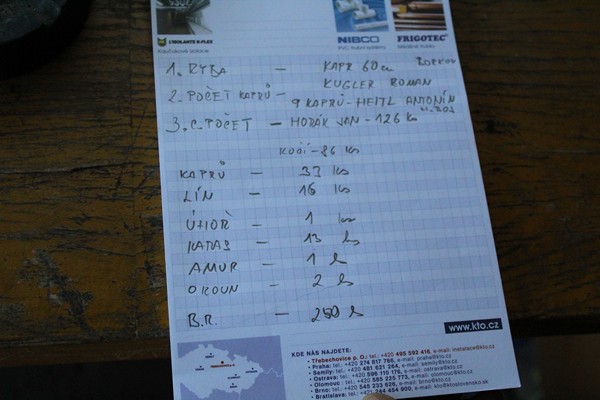 L'ISOLANTE K-FLEX
Kaučukové izolace
NIBCO
PVC tlakové systémy
FRIGOTEC
Měděné trubky
1. RYBA – KAPR 60cm BORKOV
KUGLER ROMAN
2. POČET KAPRŮ –
9 KAPRŮ – HEITL ANTONÍN
3. C. POČET – HORÁK JAN – 126 KS
KAPRŮ – 33 ks
LÍN – 16 ks
ÚHOŘ – 1 ks
KARAS – 13 ks
AMUR – 1 k
OKOUN – 2 k
B.R. – 250 k
www.kto.cz
KDE NÁS NAJDETE:
• Třebechovice p. O.: tel.: +420 495 592 416, e-mail: instalace@kto.cz
• Praha: tel.: +420 274 817 766, e-mail: praha@kto.cz
• Semily: tel.: +420 481 621 264, e-mail: semily@kto.cz
• Ostrava: tel.: +420 596 110 176, e-mail: ostrava@kto.cz
• Olomouc: tel.: +420 585 225 773, e-mail: olomouc@kto.cz
• Brno: tel.: +420 545 233 626, e-mail: brno@kto.cz
• Bratislava: tel.: